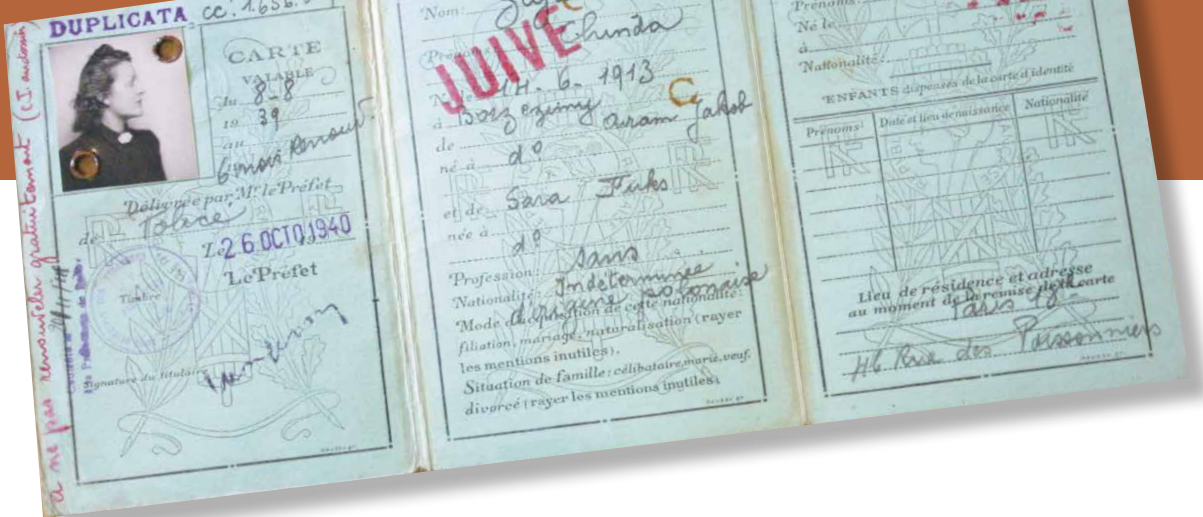 à ne pas renouveler gratuitement
DUPLICATA CC.
CARTE
VALABLE
du 8-8
19 39
au
6 mois
Délivrée par Mr le Préfet
de Police
Le 26 OCTO 1940
Le Préfet
Timbre
Signature du titulaire
Nom:
JUIVE
Prénoms
Chinda
Né le 14-6-1913
à
de Jakob
né à d°
et de Sara
née à d°
Profession: Sans
Nationalité: Indéterminée
origine polonaise
Mode d'acquisition de cette nationalité:
filiation, mariage, naturalisation (rayer
les mentions inutiles).
Situation de famille: célibataire, marié, veuf,
divorcé (rayer les mentions inutiles)
Prénoms:
Né le
à
Nationalité:
ENFANTS dispensés de la carte d'identité
Prénoms Date et lieu de naissance Nationalité
Lieu de résidence et adresse
au moment de la remise de la carte
Paris 18e
46 Rue des Poissonniers